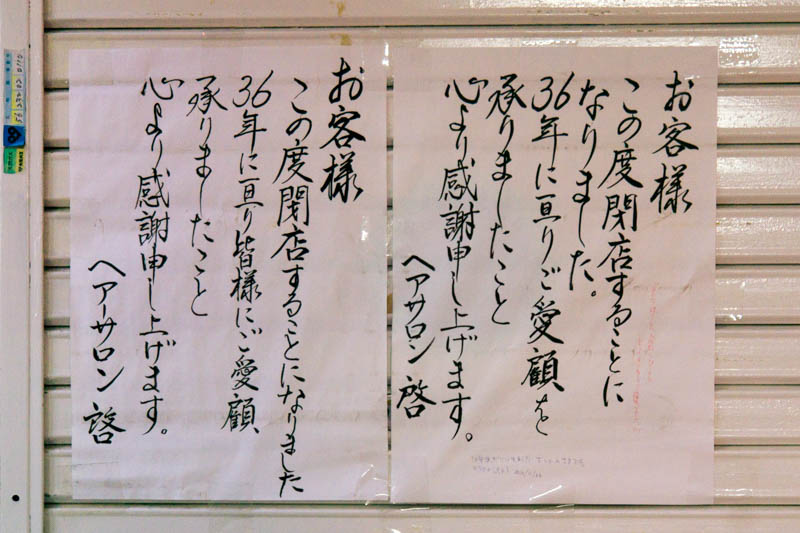 お客様
この度閉店することに
なりました。
36年に亘りご愛顧を
承りましたこと
心より感謝申し上げます。
ヘアーサロン 啓
お客様
この度閉店することになりました
36年に亘り皆様にご愛顧
承りましたこと
心より感謝申し上げます。
ヘアーサロン 啓